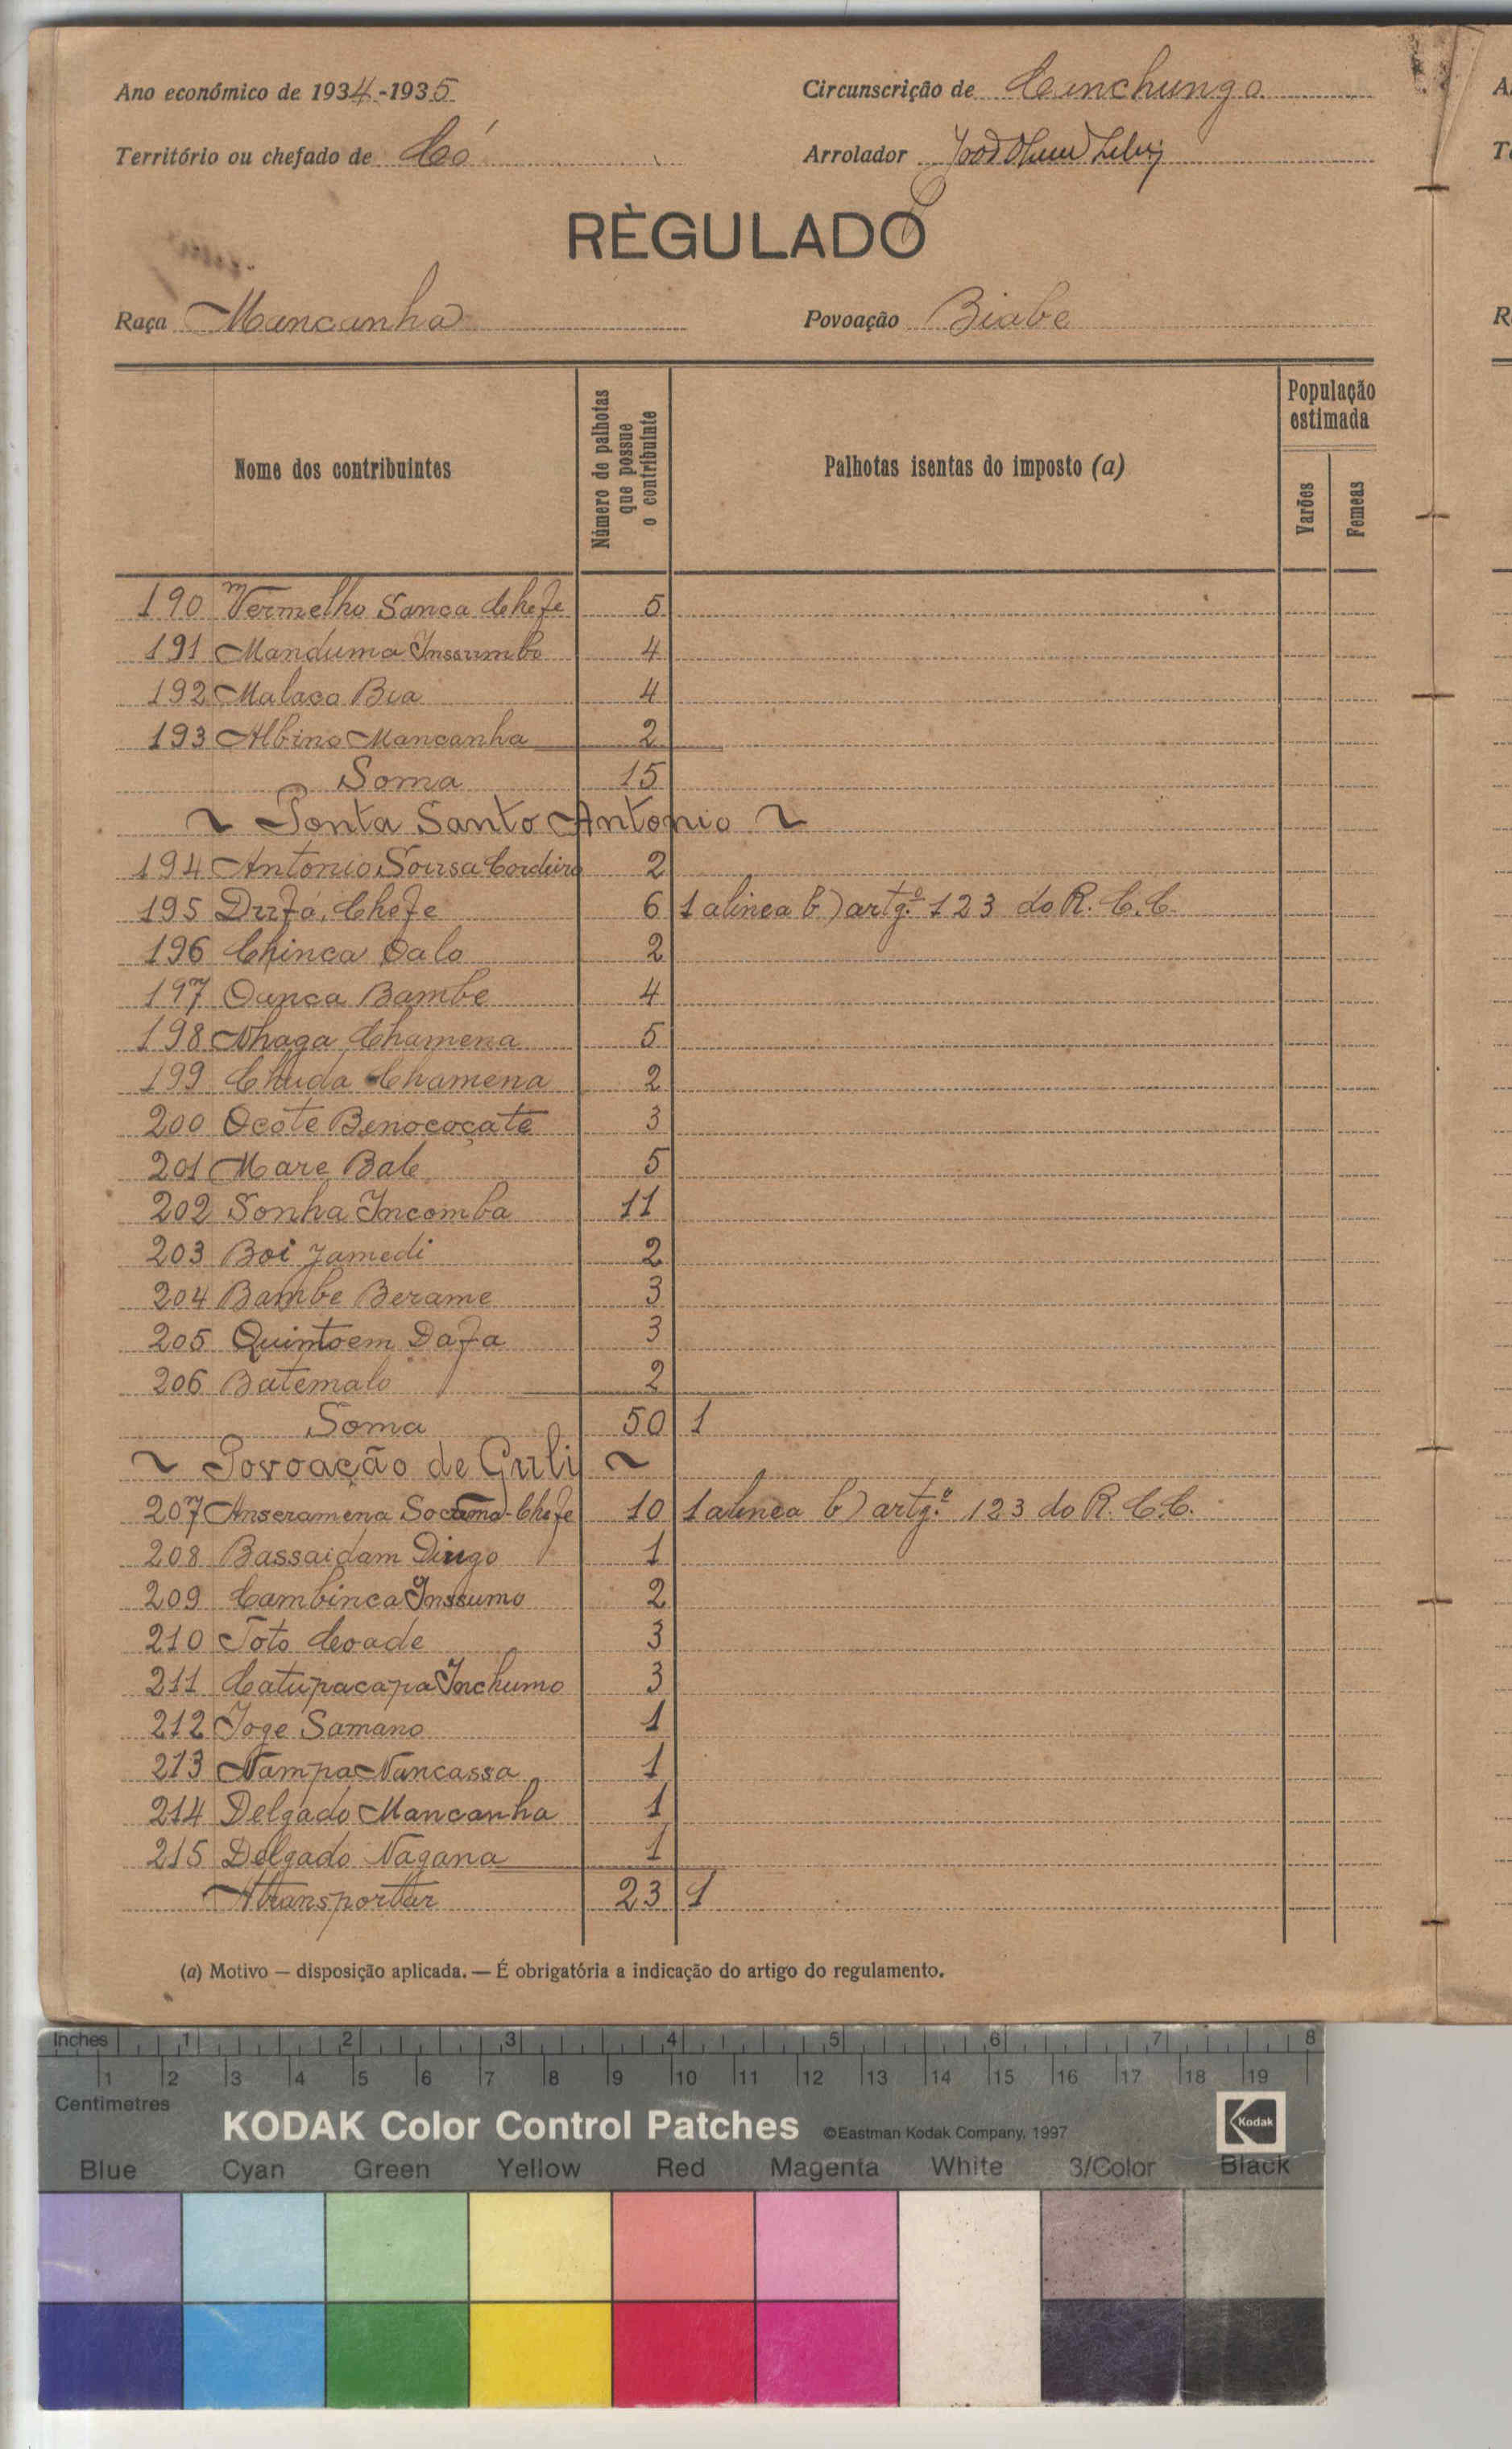 Ano económico de 1934-1935
Circunscrição de Canchungo
Território ou chefado de Có
Arrolador
REGULADO
Raça Mancanha
Povoação Biabe
Nome dos contribuintes
Número de palhotas que possue o contribuinte
Palhotas isentas do imposto (a)
População estimada
Varões
Femeas
190 Vermelho Sanca Chefe 5
191 Manduma Inssumbo 4
192 Malaco Bia 4
193 Albino Mancanha 2
Soma 15
~ Ponta Santo Antonio ~
194 Antonio Sousa Cordeiro 2
195 Dufá, Chefe 6 1 alinea b) artgº 123 do R. C. C.
196 Chinca Oalo 2
197 Oanca Bambe 4
198 Nhaga Chamena 5
199 Chuda Chamena 2
200 Ocote Benococate 3
201 Mare Bale 5
202 Sonha Incomba 11
203 Boi Jamedi 2
204 Bambe Berame 3
205 Quintoem Dafa 3
206 Batemalo 2
Soma 50 1
~ Povoação de Guli ~
207 Anseramena Chefe 10 1 alinea b) artg.º 123 do R. C. C.
208 Bassaidam Dingo 1
209 Cambinca Inssumo 2
210 Toto Coade 3
211 Catupacapa Inchumo 3
212 Joge Samano 1
213 Nampa Nancassa 1
214 Delgado Mancanha 1
215 Delgado Nagana 1
Atransportar 23 1
(a) Motivo — disposição aplicada. — É obrigatória a indicação do artigo do regulamento.
Inches 1 2 3 4 5 6 7 8
1 2 3 4 5 6 7 8 9 10 11 12 13 14 15 16 17 18 19
Centimetres
KODAK Color Control Patches ©Eastman Kodak Company, 1997 Kodak
Blue Cyan Green Yellow Red Magenta White 3/Color Black